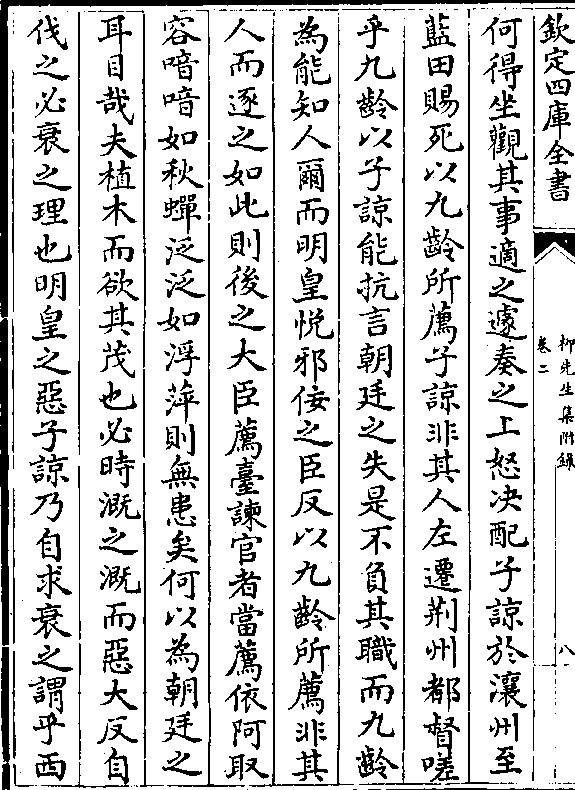 欽定四庫全書
柳先生集附錄
卷二
八
何得坐觀其事適之遽奏之上怒決配子諒於瀼州至
藍田賜死以九齡所薦子諒非其人左遷荆州都督嗟
乎九齡以子諒能抗言朝廷之失是不負其職而九齡
為能知人爾而明皇悅邪佞之臣反以九齡所薦非其
人而逐之如此則後之大臣薦臺諫官者當薦依阿取
容喑喑如秋蟬泛泛如浮萍則無患矣何以為朝廷之
耳目哉夫植木而欲其茂也必時溉之溉而惡大反自
伐之必衰之理也明皇之惡子諒乃自求衰之謂乎西